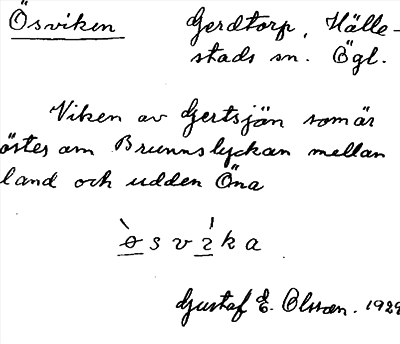 Ösviken Gerdtorp, Hälle-
stads sn. Ögl.
Viken av Gertsjön som är
öster om Brunnslyckan mellan
land och udden Öna
ø̀ s v ı̍ k a
Gustaf E. Olsson. 1929